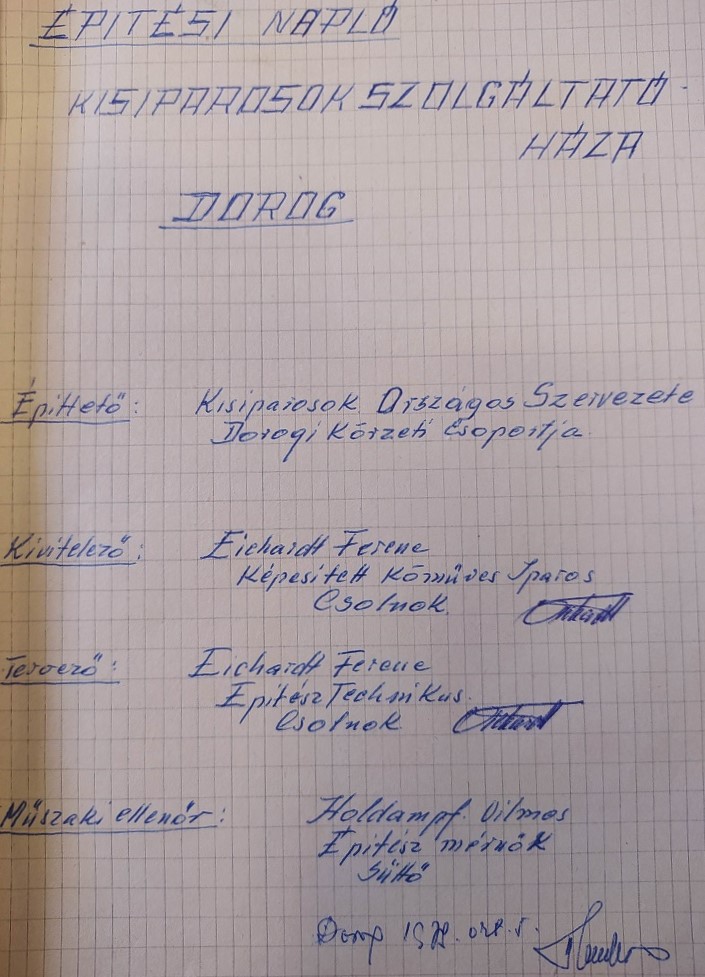 ÉPITÉSI NAPLÓ
KISIPAROSOK SZOLGÁLTATÓ
HÁZA
DOROG
Épittető:
Kisiparosok Országos Szervezete
Dorogi Körzeti Csoportja
Kivitelező:
Eichardt Ferenc
Képesitett Kőműves Iparos
Csolnok
Tervező:
Eichardt Ferenc
Épitész Technikus.
Csolnok
Műszaki ellenőr:
Holdampf Vilmos
Épitész mérnök
Süttő